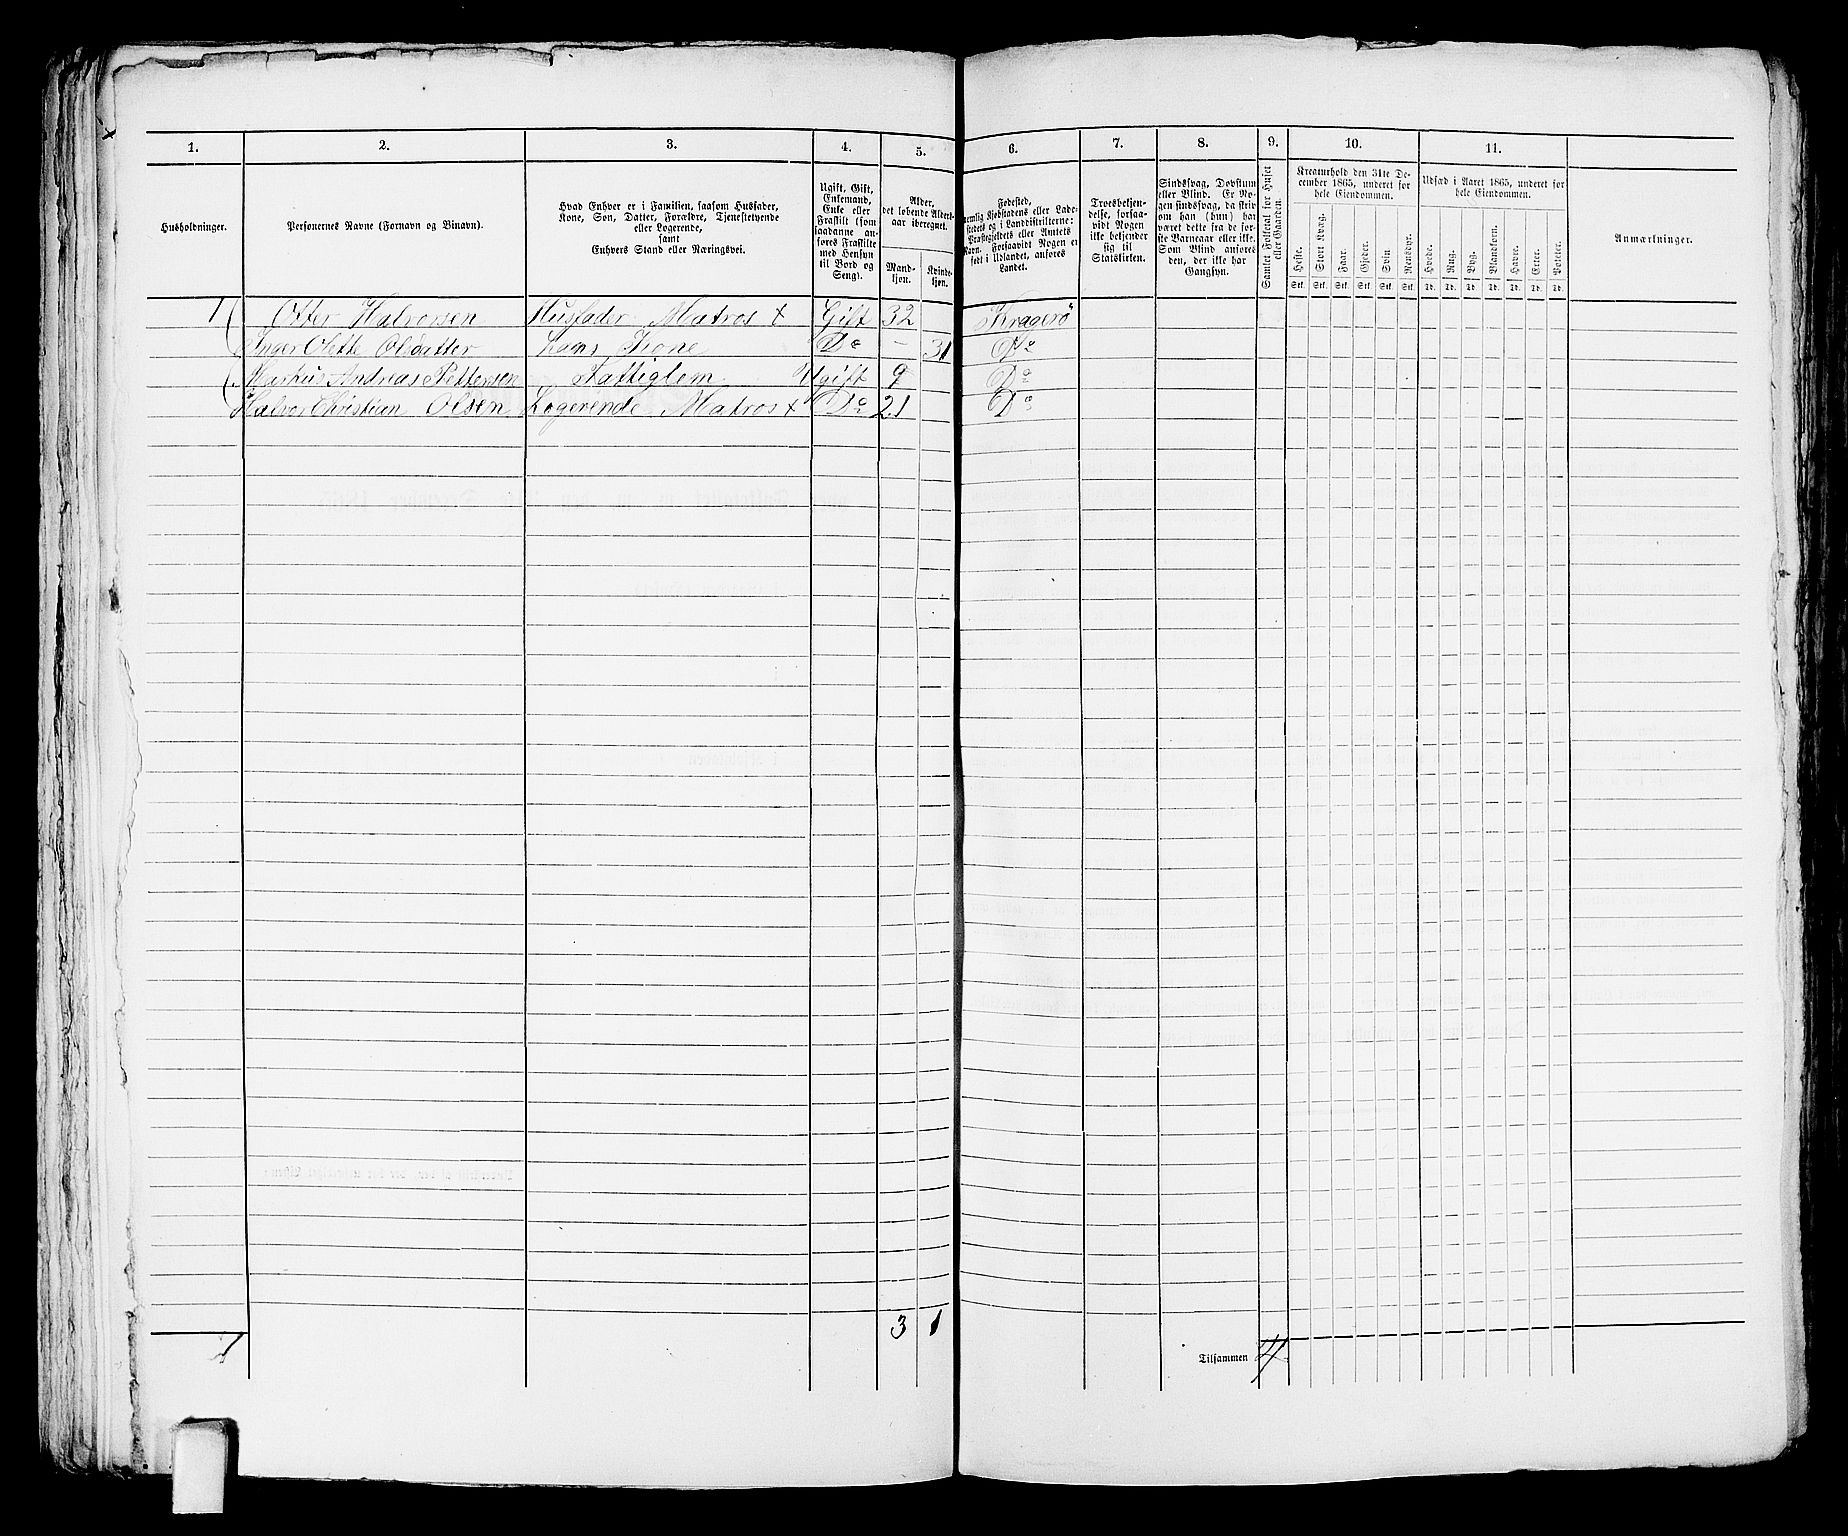 1. 2. 3. 4. 5. 6. 7. 8. 9. 10. 11.
Husholdninger.
Personernes Navne (Fornavn og Binavn).
Hvad Enhver er i Familien, saasom Husfader,
Kone, Søn, Datter, Forældre, Tjenestetyende
eller Logerende,
samt
Enhvers Stand eller Næringsvei.
Ugift, Gift,
Enkemand,
Enke eller
Fraskilt (som
saadanne an-
føres Fraskilte
med Hensyn
til Bord og
Seng).
Alder,
det løbende Alders-
aar iberegnet.
Mand-
kjøn.
Kvinde-
kjøn.
Fødested,
nemlig Kjøbstadens eller Lade-
stedets og i Landdistrikterne:
Præstegjeldets eller Amtets
Navn. Forsaavidt Nogen er
født i Udlandet, anføres
Landet.
Troesbekjen-
delse, forsaa-
vidt Nogen
ikke bekjender
sig til
Statskirken.
Sindssvag, Døvstum
eller Blind. Er No-
gen sindssvag, da skriv
om han (hun) har
været dette fra de før-
ste Barneaar eller ikke.
Som Blind anføres
den, der ikke har
Gangsyn.
Samlet Folketal for Huset
eller Gaarden.
Kreaturhold den 31te De-
cember 1865, underet for
hele Eiendommen.
Heste. Stort Kvæg. Faar. Gjeder. Svin Rensdyr.
Stk. Stk. Stk. Stk. Stk. Stk.
Udsæd i Aaret 1865, underet for
hele Eiendommen.
Hvede. Rug. Byg. Blandkorn. Havre. Erter. Poteter.
Td. Td. Td. Td. Td. Td. Td.
Anmærkninger.
1 Otter Halvorsen Husfader Matros + Gift 32 Kragerö
Inger Olette Olsdatter Hans Kone Do - 31 Do
Markus Andreas Pettersen Fattiglem Ugift 9 Do
Halvor Christian Olsen Logerende Matros + Do 21 Do
3 1
1 Tilsammen 4